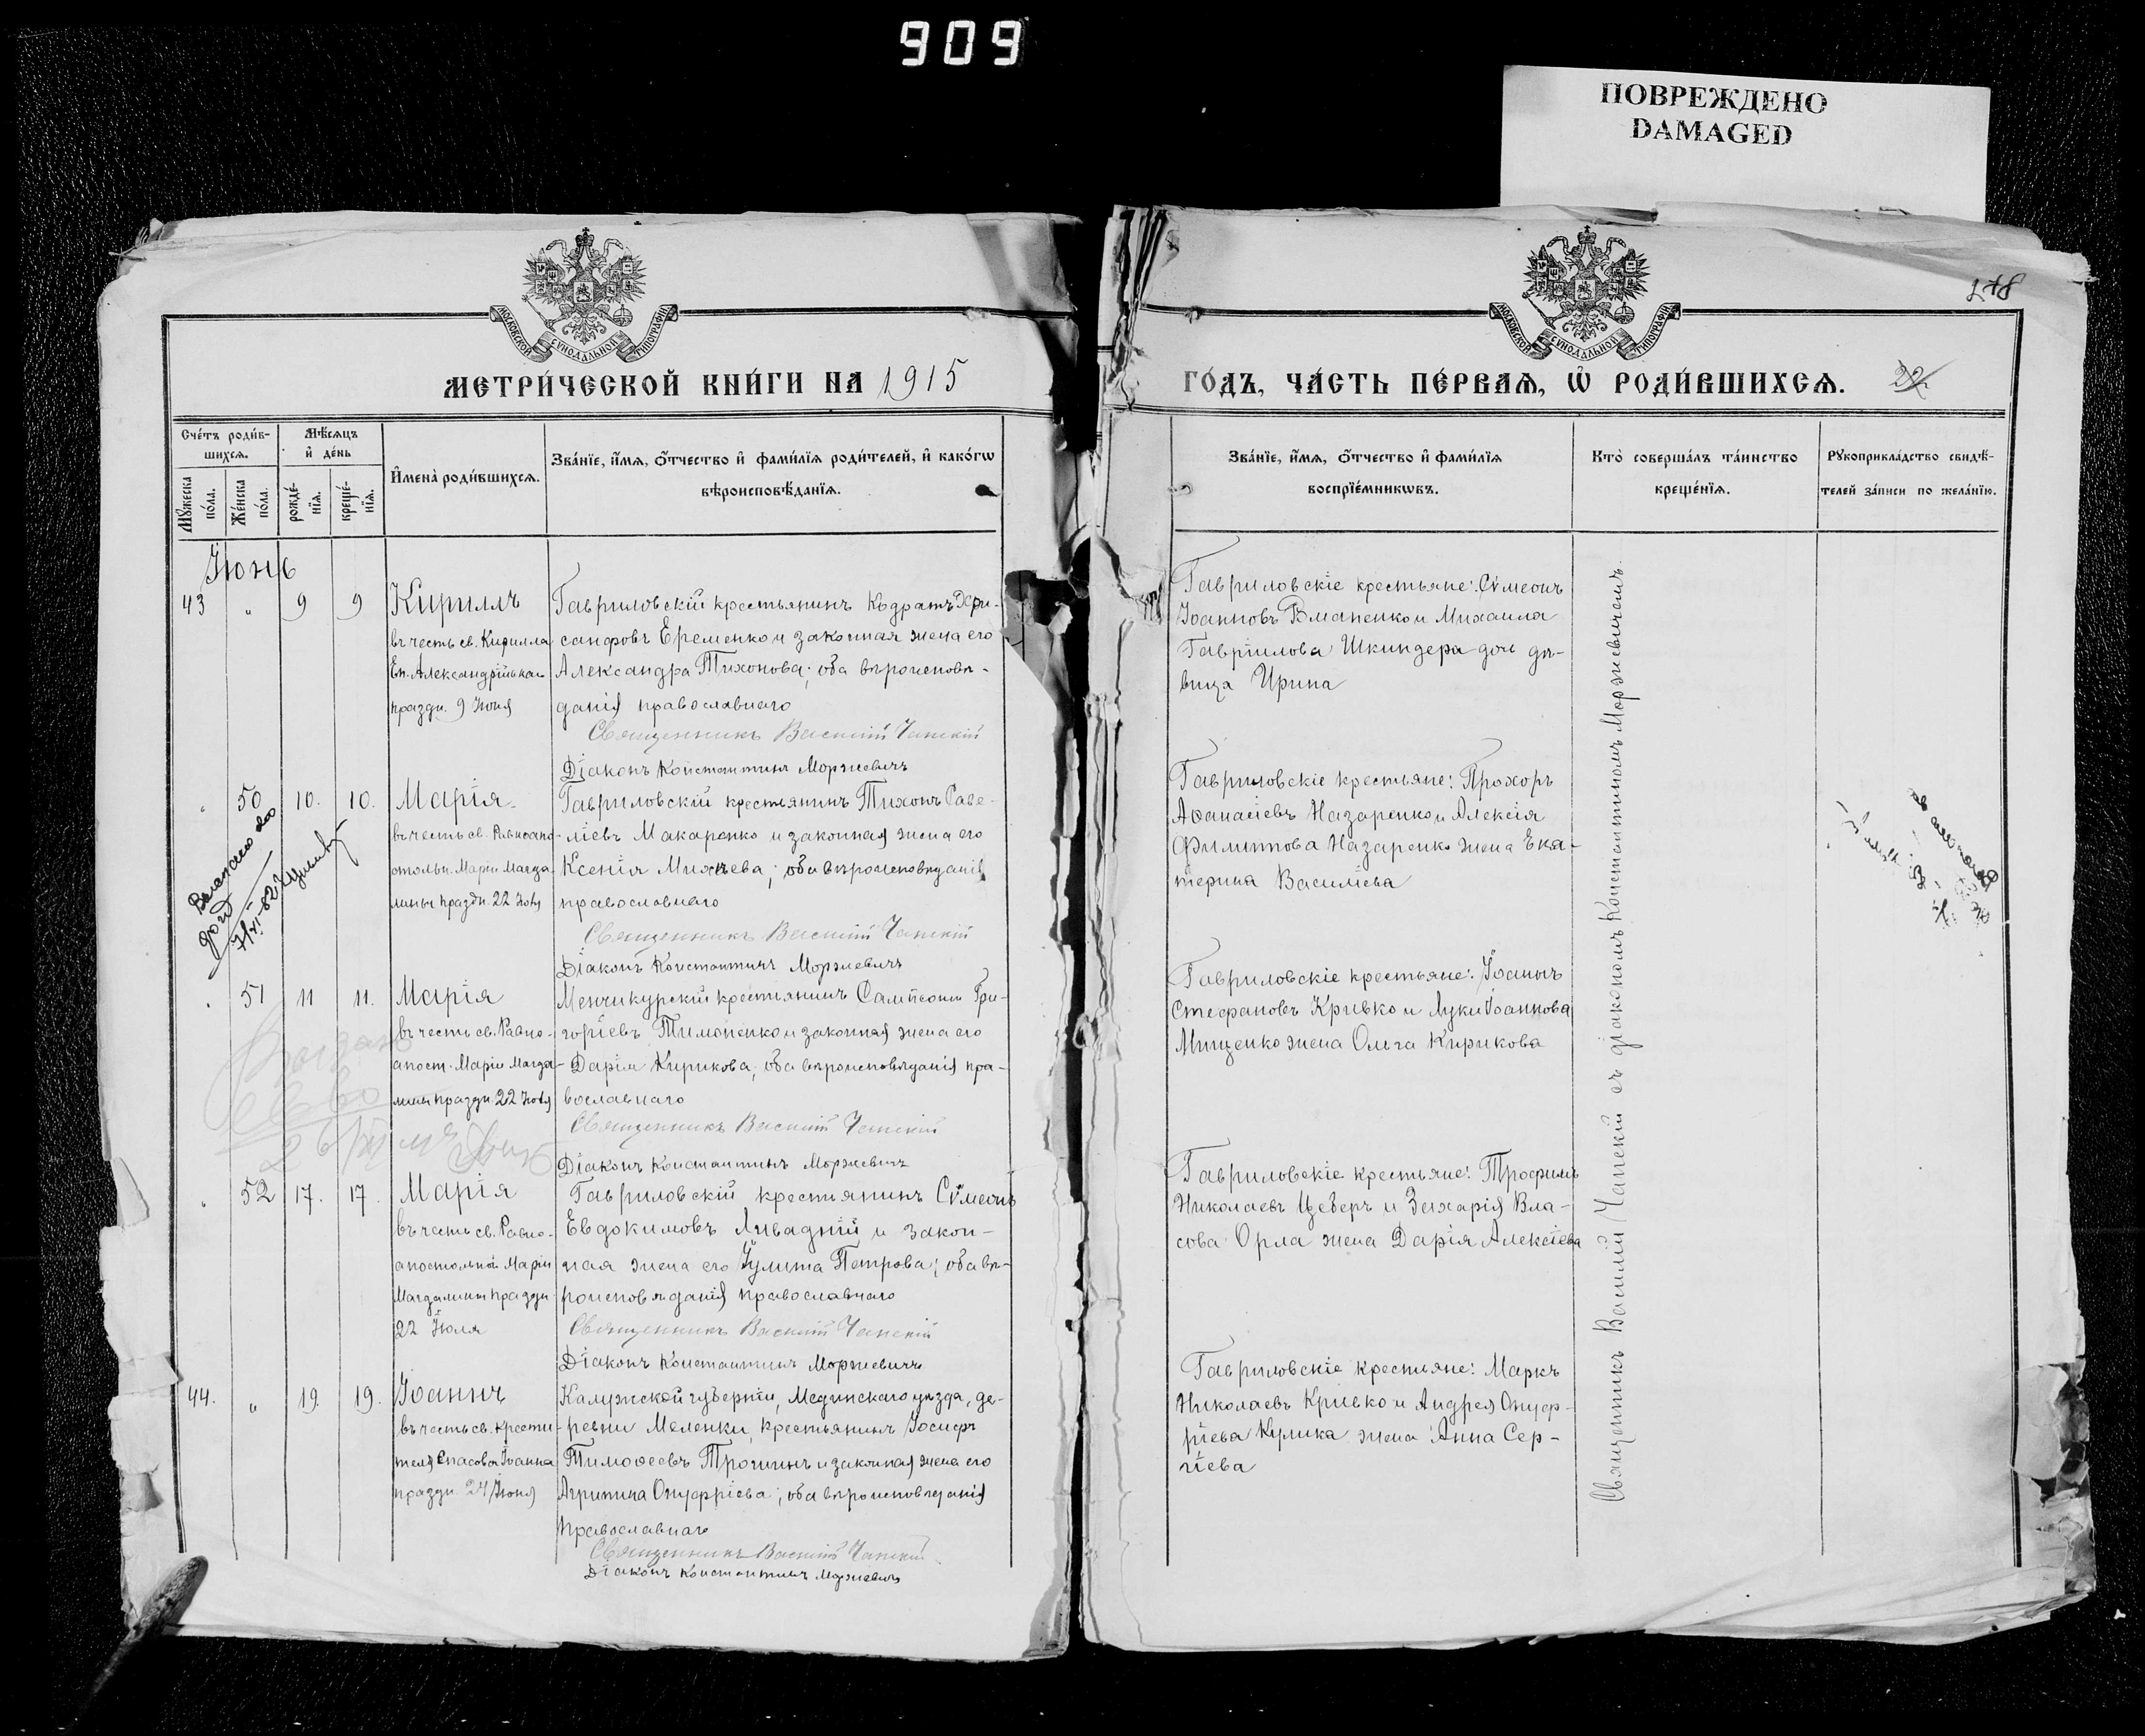 909
ПОВРЕЖДЕНО
DAMAGED
МОСКОВСКОЙ СѴНОДАЛЬНОЙ ТИПОГРАФІИ
МЕТРИ́ЧЕСКОЙ КНИ́ГИ НА 1915
Сче́тъ роди́в-
шихсѧ.
Мѣ́сѧцъ
и҆ де́нь
Мꙋ́жеска
по́ла.
Же́нска
по́ла.
рожде́-
нїѧ.
креще́-
нїѧ.
И҆мена̀ роди́вшихсѧ.
Зва́нїе, и҆́мѧ, ѻ҆́тчество и҆ фами́лїѧ роди́телей, и҆ како́гѡ
вѣроисповѣ́данїѧ.
Іюнь
43 " 9 9
Кириллъ
въ честь св. Кирилла
Еп. Александрійскаго
праздн. 9 Іюня
Гавриловскій крестьянинъ Кодратъ
санфовъ Еременко и законная жена его
Александра Тихонова; оба вѣроисповѣ-
данія православнаго
Священникъ Василій Чапскій
Діаконъ Константинъ Моржевичъ
" 50 10. 10.
Марія
въ честь св. Равноапо-
стольн. Маріи Магда-
лины праздн. 22 Іюля
Гавриловскій крестьянинъ Тихонъ Саве-
ліевъ Макаренко и законная жена его
Ксенія Михѣева; оба вѣроисповѣданія
православнаго
Священникъ Василій Чапскій
Діаконъ Константинъ Моржевичъ
" 51 11 11.
Марія
въ честь св. Равно-
апост. Маріи Магда-
лины праздн. 22 Іюля
Менчикурскій крестьянинъ Сампсонъ Гри-
горіевъ Тимоненко и законная жена его
Дарія Кирикова; оба вѣроисповѣданія пра-
вославнаго
Священникъ Василій Чапскій
Діаконъ Константинъ Моржевичъ
" 52 17. 17.
Марія
въ честь св. Равно-
апостольной Маріи
Магдалины праздн.
22 Іюля
Гавриловскій крестьянинъ Сѵмеонъ
Евдокимовъ Ливадній и закон-
ная жена его Іулита Петрова; оба вѣ-
роисповѣданія православнаго
Священникъ Василій Чапскій
Діаконъ Константинъ Моржевичъ
44. " 19. 19.
Іоаннъ
въ честь св. крести-
теля Спасова Іоанна
праздн. 24 Іюня
Калужской губерніи, Медынскаго уѣзда, де-
ревни Меленки, крестьянинъ Іосифъ
Тимоѳеевъ Трошинъ и законная жена его
Агрипина Онуфріева; оба вѣроисповѣданія
православнаго
Священникъ Василій Чапскій
Діаконъ Константинъ Моржевичъ
МОСКОВСКОЙ СѴНОДАЛЬНОЙ ТИПОГРАФІИ
ГО́ДЪ, ЧА́СТЬ ПЕ́РВАѦ, Ѡ҆ РОДИ́ВШИХСѦ.
Зва́нїе, и҆́мѧ, ѻ҆́тчество и҆ фами́лїѧ
воспрїе́мникѡвъ.
Кто̀ соверша́лъ та́инство
креще́нїѧ.
Рꙋкоприкла́дство свидѣ́-
телей за́писи по жела́нїю.
Гавриловскіе крестьяне: Сѵмеонъ
Іоанновъ Вманенко и Михаила
Гавріилова Шкиндера дочь дѣ-
вица Ирина
Гавриловскіе крестьяне: Прохоръ
Аѳанасіевъ Назаренко и Алексія
Филиппова Назаренко жена Ека-
терина Василіева
Гавриловскіе крестьяне: Іоаннъ
Стефановъ Кривко и Луки Іоаннова
Мищенко жена Ольга Кирикова
Гавриловскіе крестьяне: Трофимъ
Николаевъ Цеберъ и Захарія Вла-
сова Орла жена Дарія Алексіева
Гавриловскіе крестьяне: Маркъ
Николаевъ Кривко и Андрея Онуф-
ріева Кулика жена Анна Сер-
гіева
Священникъ Василій Чапскій съ діакономъ Константиномъ Моржевичемъ.